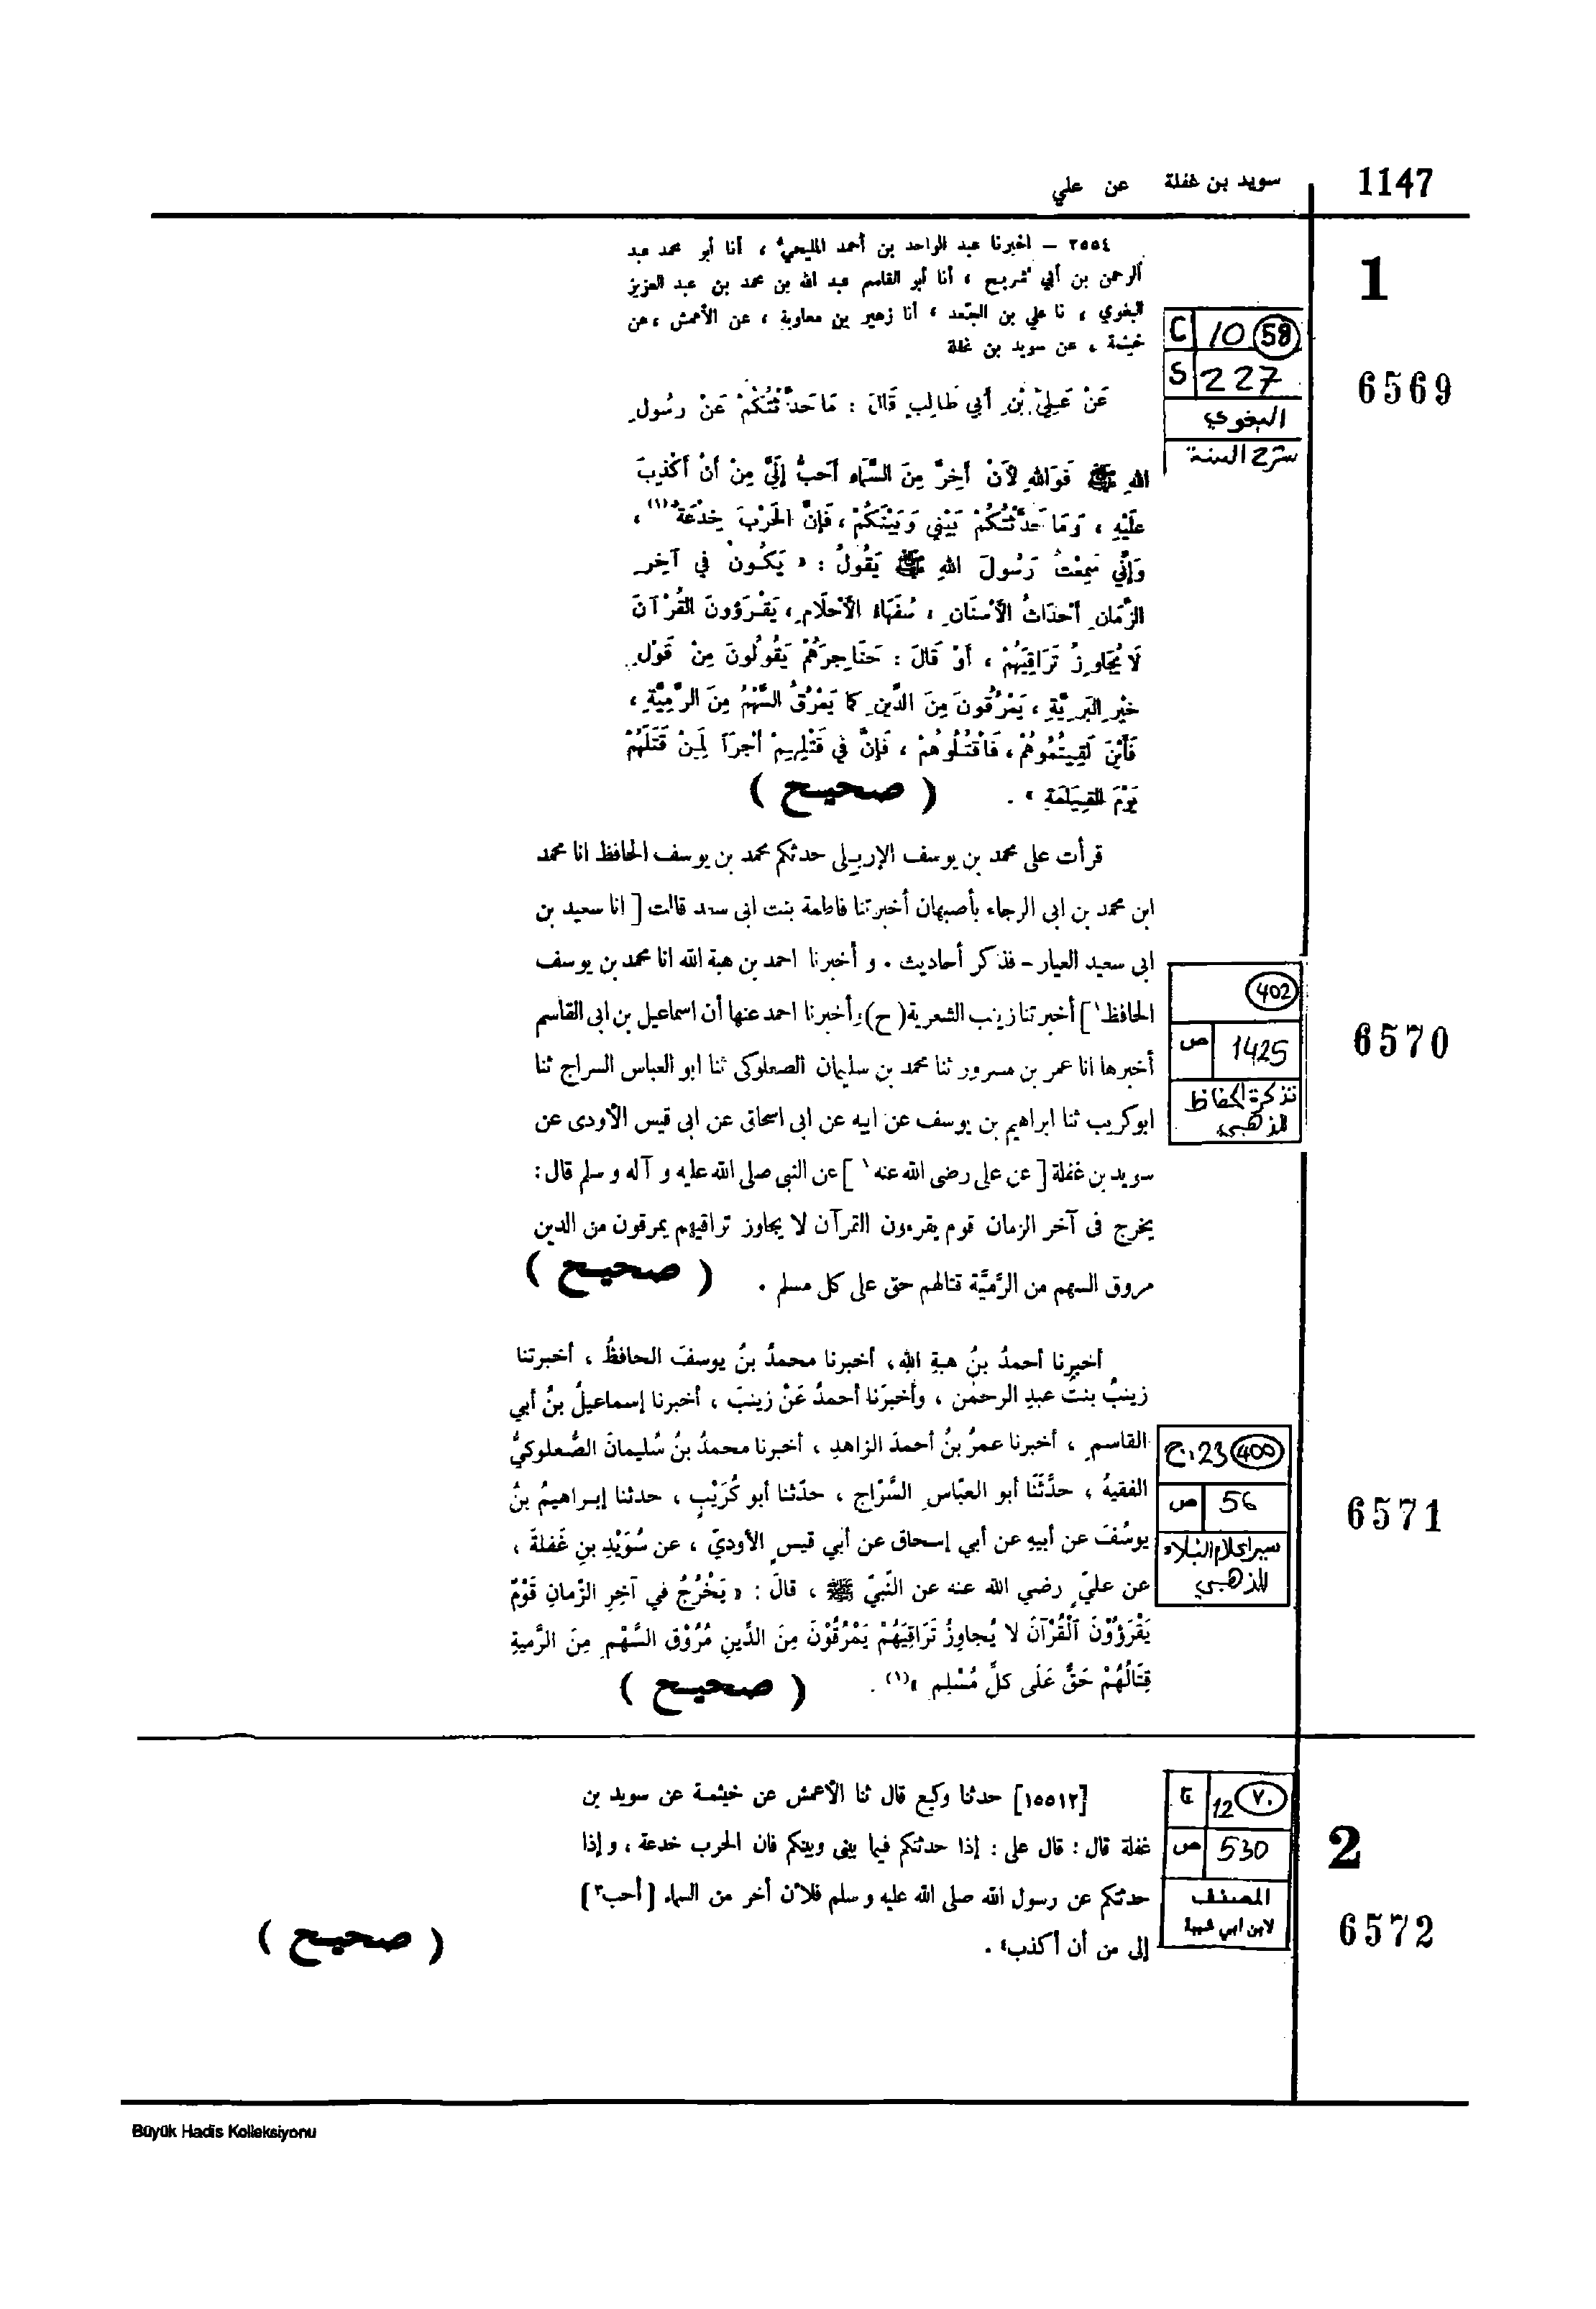 1147
سويد بن غفلة عن علي
1
٢٥٥٤ – أخبرنا عبد الواحد بن أحمد المليحيُّ ، أنا أبو محمد عبد
الرحمن بن أبي شريح ، أنا أبو القاسم عبد الله بن محمد بن عبد العزيز
البغوي ، نا علي بن الجَعد ، أنا زهير بن معاوية ، عن الأعمش ، عن
خيثمة ، عن سويد بن غفلة
C 10 58
S 227
البغوي
شرح السنة
6569
عَنْ عَلِيِّ بْنِ أَبي طَالِبٍ قَالَ : مَا حَدَّثْتُكُمْ عَنْ رَسُولِ
اللهِ ﷺ فَوَاللهِ لَأَنْ أَخِرَّ مِنَ السَّمَاءِ أَحَبُّ إِلَيَّ مِنْ أَنْ أَكْذِبَ
عَلَيْهِ ، وَمَا حَدَّثْتُكُمْ بَيْنِي وَبَيْنَكُمْ ، فَإِنَّ الحَرْبَ خِدْعَةٌ (١) ،
وَإِنِّي سَمِعْتُ رَسُولَ اللهِ ﷺ يَقُولُ : « يَكُونُ فِي آخِرِ
الزَّمَانِ أَحْدَاثُ الأَسْنَانِ ، سُفَهَاءُ الأَحْلَامِ ، يَقْرَؤُونَ القُرْآنَ
لَا يُجَاوِزُ تَرَاقِيَهُمْ ، أَوْ قَالَ : حَنَاجِرَهُمْ يَقُولُونَ مِنْ قَوْلِ
خَيْرِ البَرِيَّةِ ، يَمْرُقُونَ مِنَ الدِّينِ كَمَا يَمْرُقُ السَّهْمُ مِنَ الرَّمِيَّةِ ،
فَأَيْنَ لَقِيتُمُوهُمْ ، فَاقْتُلُوهُمْ ، فَإِنَّ فِي قَتْلِهِمْ أَجْرَاً لِمَنْ قَتَلَهُمْ
يَوْمَ القِيَامَةِ » . ( صحيح )
قرأت على محمد بن يوسف الإربلى حدثكم محمد بن يوسف الحافظ انا محمد
ابن محمد بن ابى الرجاء بأصبهان أخبرتنا فاطمة بنت ابى سعد قالت [ انا سعيد بن
ابى سعيد العيار - فذكر أحاديث . و أخبرنا احمد بن هبة الله انا محمد بن يوسف
الحافظ ١ ] أخبرتنا زينب الشعرية ( ح ) وأخبرنا احمد عنها أن اسماعيل بن ابى القاسم
أخبرها انا عمر بن مسرور ثنا محمد بن سليمان الصعلوكى ثنا ابو العباس السراج ثنا
ابو كريب ثنا ابراهيم بن يوسف عن ابيه عن ابى اسحاق عن ابى قيس الأودى عن
سويد بن غفلة [ عن على رضى الله عنه ١ ] عن النبى صلى الله عليه و آله و سلم قال :
يخرج فى آخر الزمان قوم يقرءون القرآن لا يجاوز تراقيهم يمرقون من الدين
مروق السهم من الرَّمِيَّة قتالهم حق على كل مسلم . ( صحيح )
402
ص 1425
تذكرة الحفاظ
للذهبي
6570
أخبرنا أحمدُ بنُ هبةِ اللهِ، أخبرنا محمدُ بنُ يوسفَ الحافظُ ، أخبرتنا
زينبُ بنتُ عبدِ الرحمٰن ، وأخبرَنا أحمدُ عَنْ زينبَ ، أخبرنا إسماعيلُ بنُ أبي
القاسمِ ، أخبرنا عمرُ بنُ أحمدَ الزاهدِ ، أخبرنا محمدُ بنُ سُليمانَ الصُّعلوكيُّ
الفقيهُ ، حدَّثَنا أبو العبّاسِ السَّرّاج ، حدّثنا أبو كُرَيْبٍ ، حدثنا إبراهيمُ بنُ
يوسُفَ عن أبيهِ عن أبي إسحاق عن أبي قيسٍ الأوديّ ، عن سُوَيْدِ بنِ غَفلةَ ،
عن عليّ رضي الله عنه عن النَّبيّ ﷺ ، قالَ : « يَخْرُجُ في آخِرِ الزّمانِ قَوْمٌ
يَقْرَؤُوْنَ الْقُرْآنَ لا يُجاوِزُ تَرَاقِيَهُمْ يَمْرُقُوْنَ مِنَ الدِّينِ مُرُوْقَ السَّهْمِ مِنَ الرَّميةِ
قِتَالُهُمْ حَقٌّ عَلَى كلِّ مُسْلِمٍ »(١) . ( صحيح )
ج 23، 400
ص 56
سير اعلام النبلاء
للذهبي
6571
[١٥٥١٢] حدثنا وكيع قال ثنا الأعمش عن خيثمة عن سويد بن
غفلة قال : قال على : إذا حدثتكم فيما بينى وبينكم فان الحرب خدعة ، و إذا
حدثتكم عن رسول الله صلى الله عليه و سلم فلأن أخر من السماء [ أحب ٣ ]
إلى من أن أكذب . ( صحيح )
ج 12 ٧٠
ص 530
المصنف
لابن ابي شيبة
2
6572
Büyük Hadis Kolleksiyonu